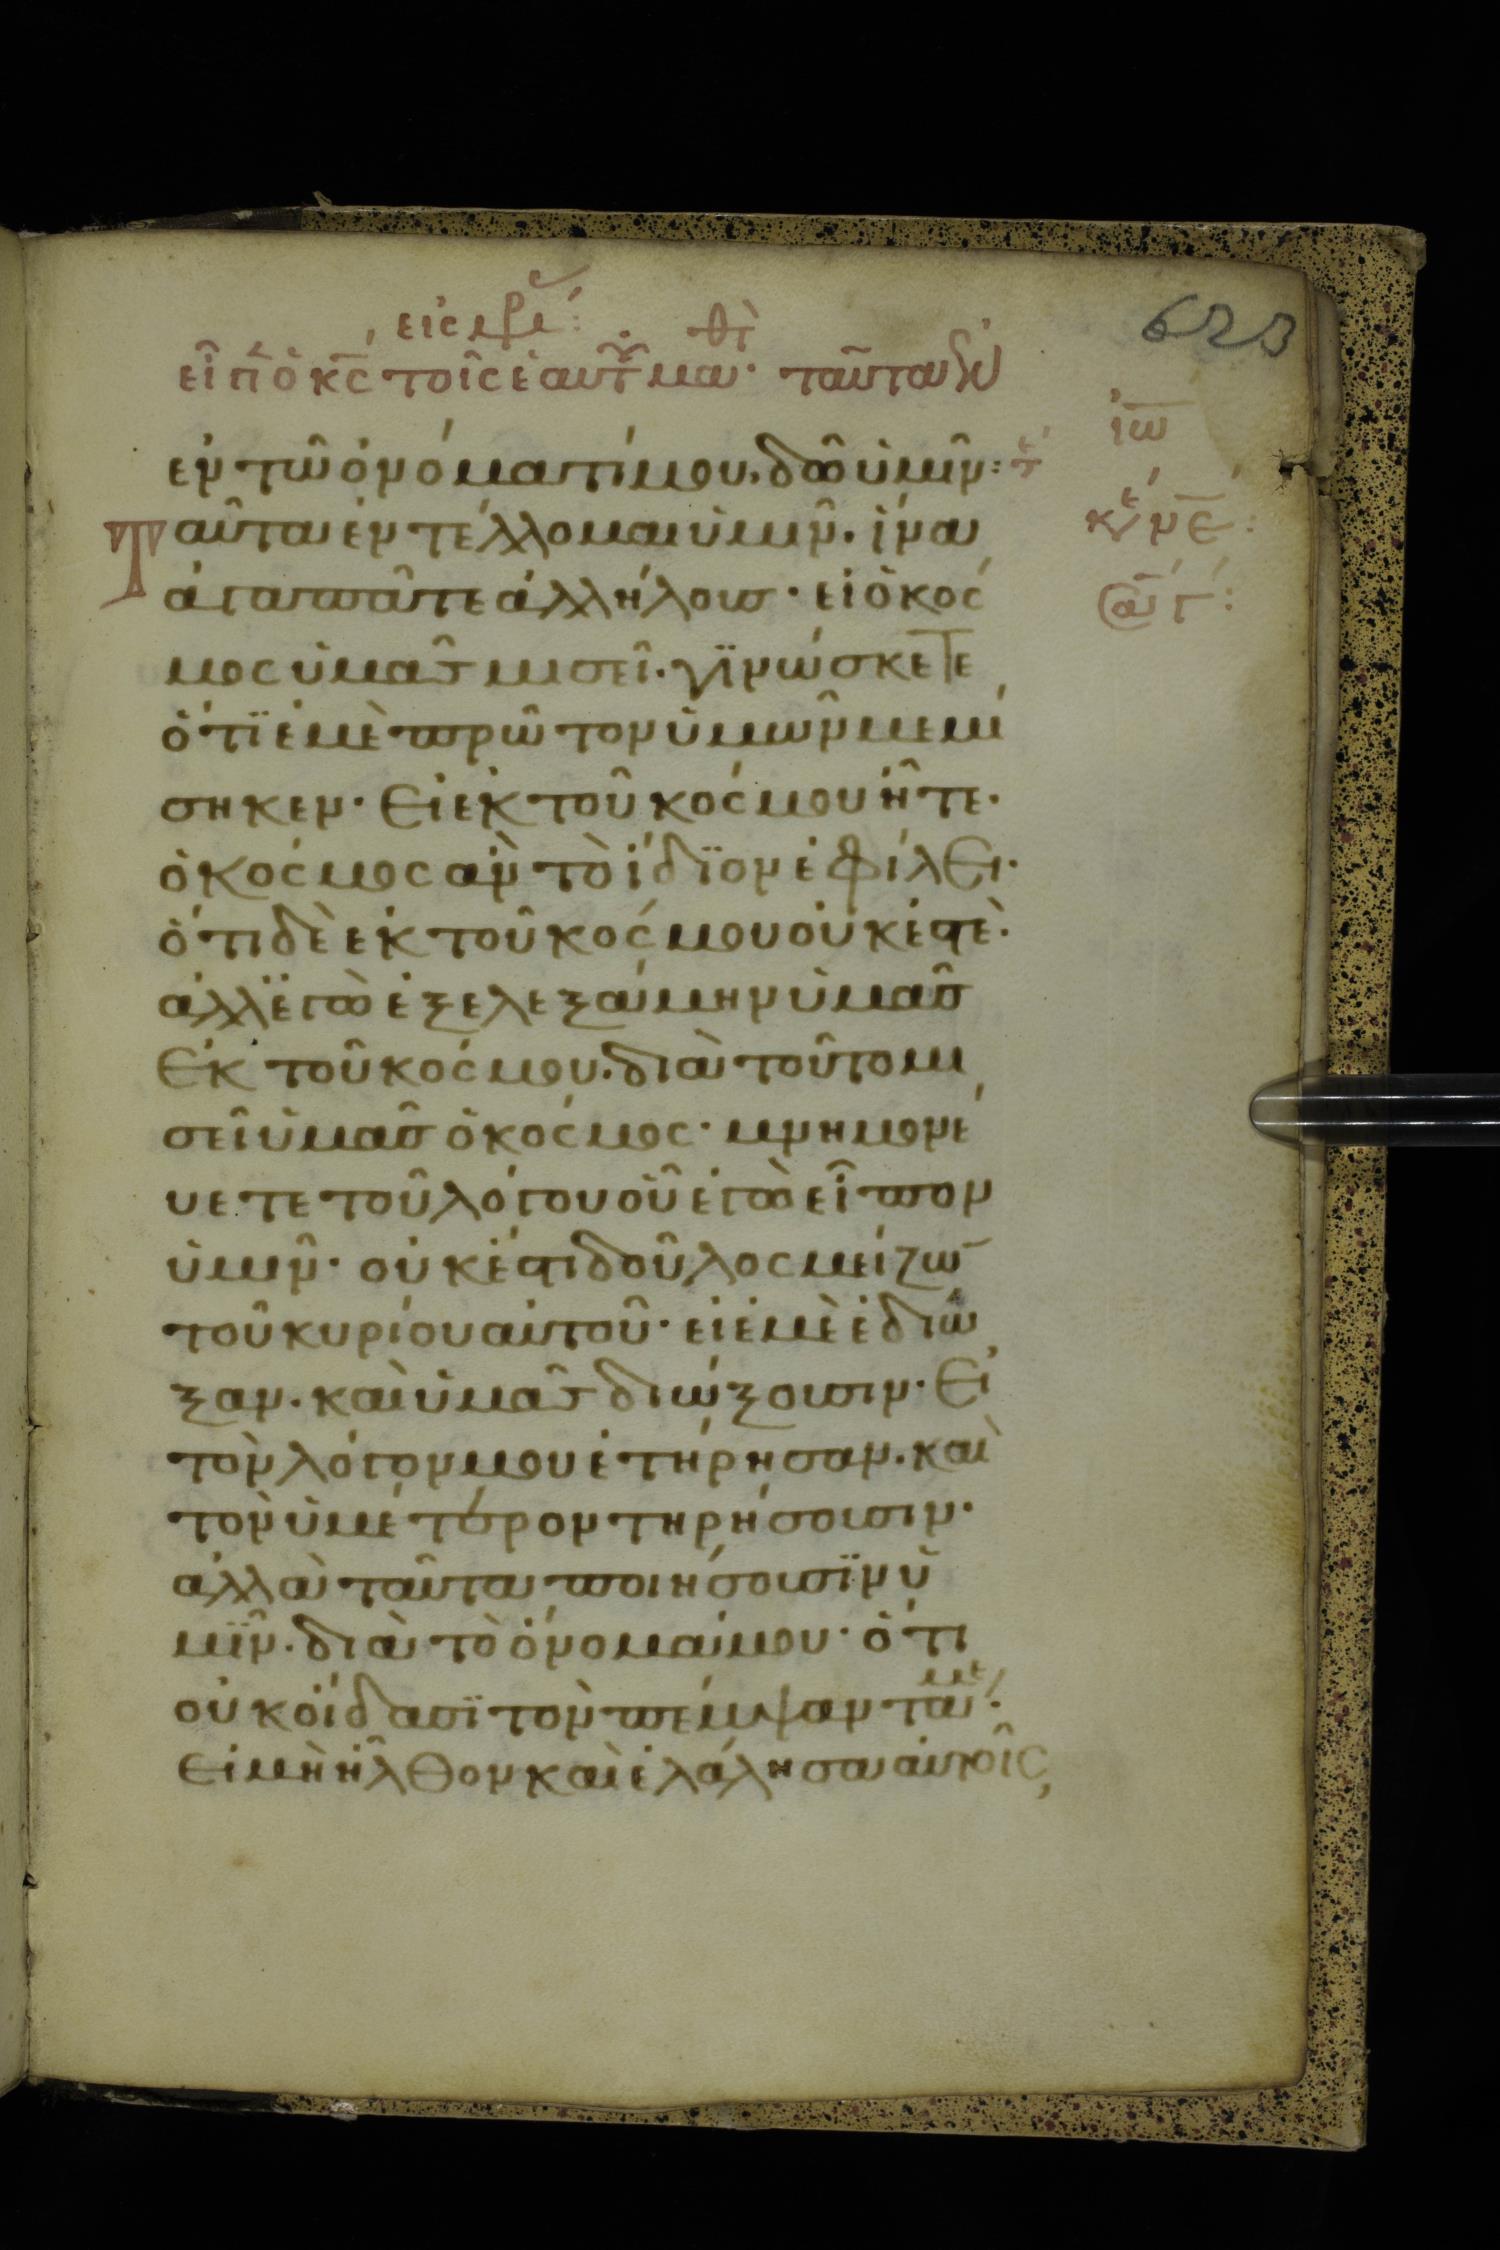 εἶπ ὁ κ̅ς̅ τοῖς ἑαυτ μα· ταῦτα
εν τῶ ὀνόματί μου, δῶ ὑμῖν:
Ταῦτα ἐντέλλομαι ὑμῖν. ἵνα
ἀγαπᾶτε ἀλλήλους· εἰ ὁ κόσ
μος ὑμᾶς μισεῖ. γϊνώσκετε
ὅτϊ ἐμὲ πρῶτον ὑμῶν μεμί
σηκεν· Εἰ ἐκ τοῦ κόσμου ἦτε·
ὁ κόσμος ἂν τὸ ἴδϊον ἐφίλει·
ὅτι δὲ ἐκ τοῦ κόσμου οὐκ ἐστὲ·
ἀλλ' ἐγὼ ἐξελεξάμην ὑμᾶς
Ἐκ τοῦ κόσμου. διὰ τοῦτο μι
σεῖ ὑμᾶς ὁ κόσμος· μνημονέ
υετε τοῦ λόγου οὗ ἐγὼ εἶπον
ὑμῖν· οὐκ ἔστι δοῦλος μείζω̅
τοῦ κυρίου αὐτοῦ· εἰ ἐμὲ ἐδίω
ξαν. καὶ ὑμᾶς διώξουσιν· Εἰ
τὸν λόγον μου ἐτήρησαν. καὶ
τὸν ὑμέτερον τηρήσουσιν·
ἀλλὰ ταῦτα ποιήσουσϊν ὑ
μῖν. διὰ τὸ ὄνομά μου· ὅτι
οὐκ οἴδασϊ τὸν πέμψαντά με·
Εἰ μὴ ἦλθον καὶ ἐλάλησα αὐτοῖς,
ἰω̅